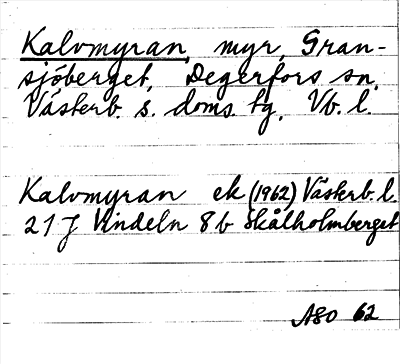 Kalvmyran, myr, Gran-
sjöberget, Degerfors sn,
Västerb. s. doms. tg, Vb. l.
Kalvmyran ek (1962) Västerb. l.
21 J Vindeln 8 b Skålholmberget
ASO 62